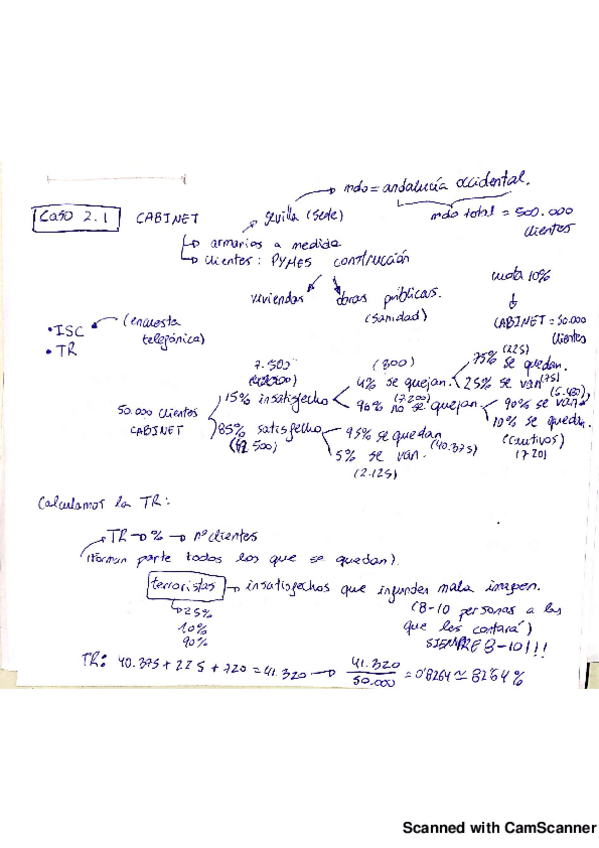 mdo = andalucía occidental.
Caso 2.1 CABINET → Sevilla (sede) mdo total = 500.000 clientes
→ armarios a medida
→ clientes: PYMES construcción cuota 10%
viviendas obras públicas. (sanidad)
CABINET = 50.000 clientes
• ISC (encuesta telefónica)
• TR
7.500 (300) 75% se quedan. (225)
15% insatisfecho 4% se quejan. 25% se van (75)
96% no se quejan (7.200) 90% se van (6.480)
50.000 clientes CABINET 10% se quedan. (cautivos) (720)
85% satisfecho (42.500) 95% se quedan (40.375)
5% se van. (2.125)
Calculamos la TR:
→ TR → % → nº clientes
(forman parte todos los que se quedan).
terroristas → insatisfechos que infunden mala imagen.
→ 25% (8-10 personas a los
10% que les contará)
90% SIEMPRE 8-10!!!
TR: 40.375 + 225 + 720 = 41.320 → 41.320 / 50.000 = 0'8264 ≃ 82'64%
Scanned with CamScanner